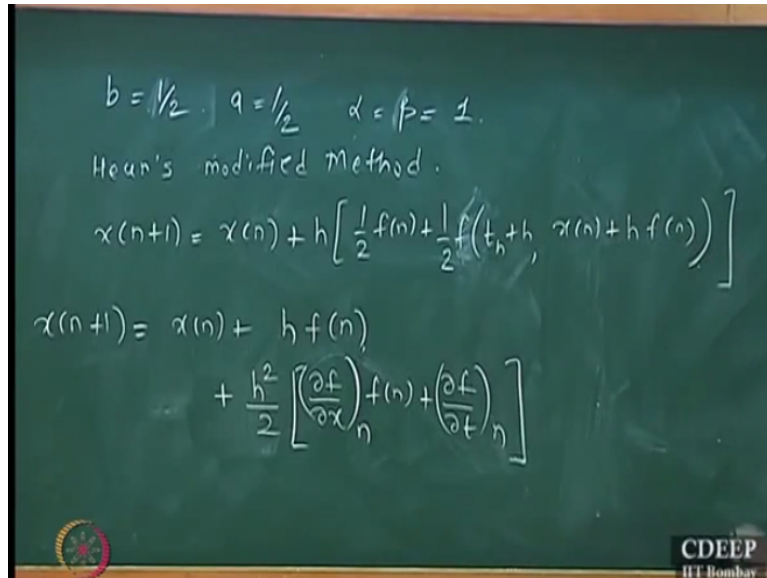 b = 1/2. a = 1/2 α = β = 1.
Heun's modified Method.
x(n+1) = x(n) + h[1/2 f(n) + 1/2 f(t_n + h, x(n) + h f(n))]
x(n+1) = x(n) + h f(n)
+ h²/2 [(∂f/∂x)_n f(n) + (∂f/∂t)_n]
CDEEP
IIT Bombay